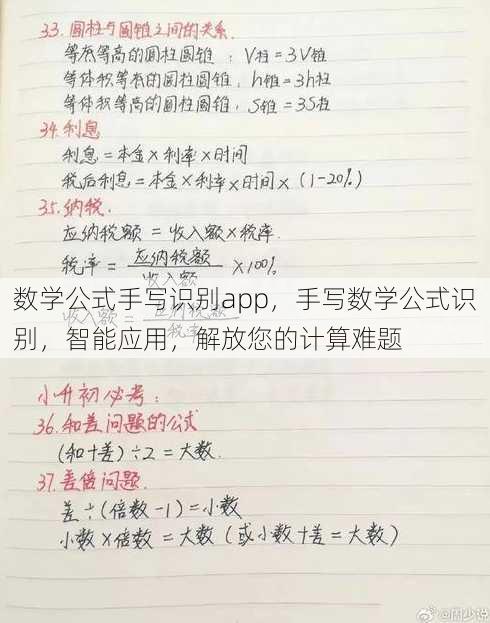 33.圆柱与圆锥之间的关系.
等底等高的圆柱圆锥：V柱=3V锥
等体积等底的圆柱圆锥，h锥=3h柱
等体积等高的圆柱圆锥，S锥=3S柱
34.利息
利息=本金×利率×时间
税后利息=本金×利率×时间×(1-20%)
35.纳税.
应纳税额=收入额×税率.
税率=应纳税额/收入额×100%
数学公式手写识别app，手写数学公式识
别，智能应用，解放您的计算难题
收入额=应纳税额/税率
小升初必考：
36.和差问题的公式
(和+差)÷2=大数.
37.差倍问题.
差÷(倍数-1)=小数
小数×倍数=大数(或小数+差=大数)